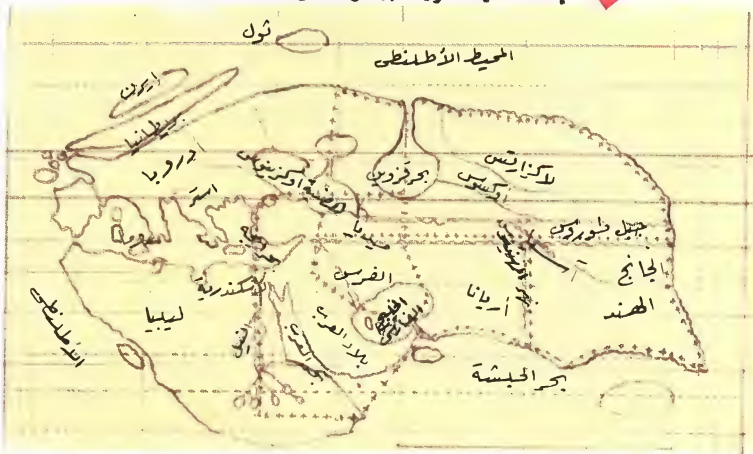 ثول
المحيط الأطلنطى
ايرن
بريطانيا
أوروبا
استر
بحر قزوين
أوكسوس
جبل طوروس
ميديا
الجانج
الهند
نهر الهندوس
أريانا
الفرس
الخليج
الفارسى
بلاد العرب
بحر العرب
النيل
الإسكندرية
ليبيا
روما
الأطلنطى
بحر الحبشة